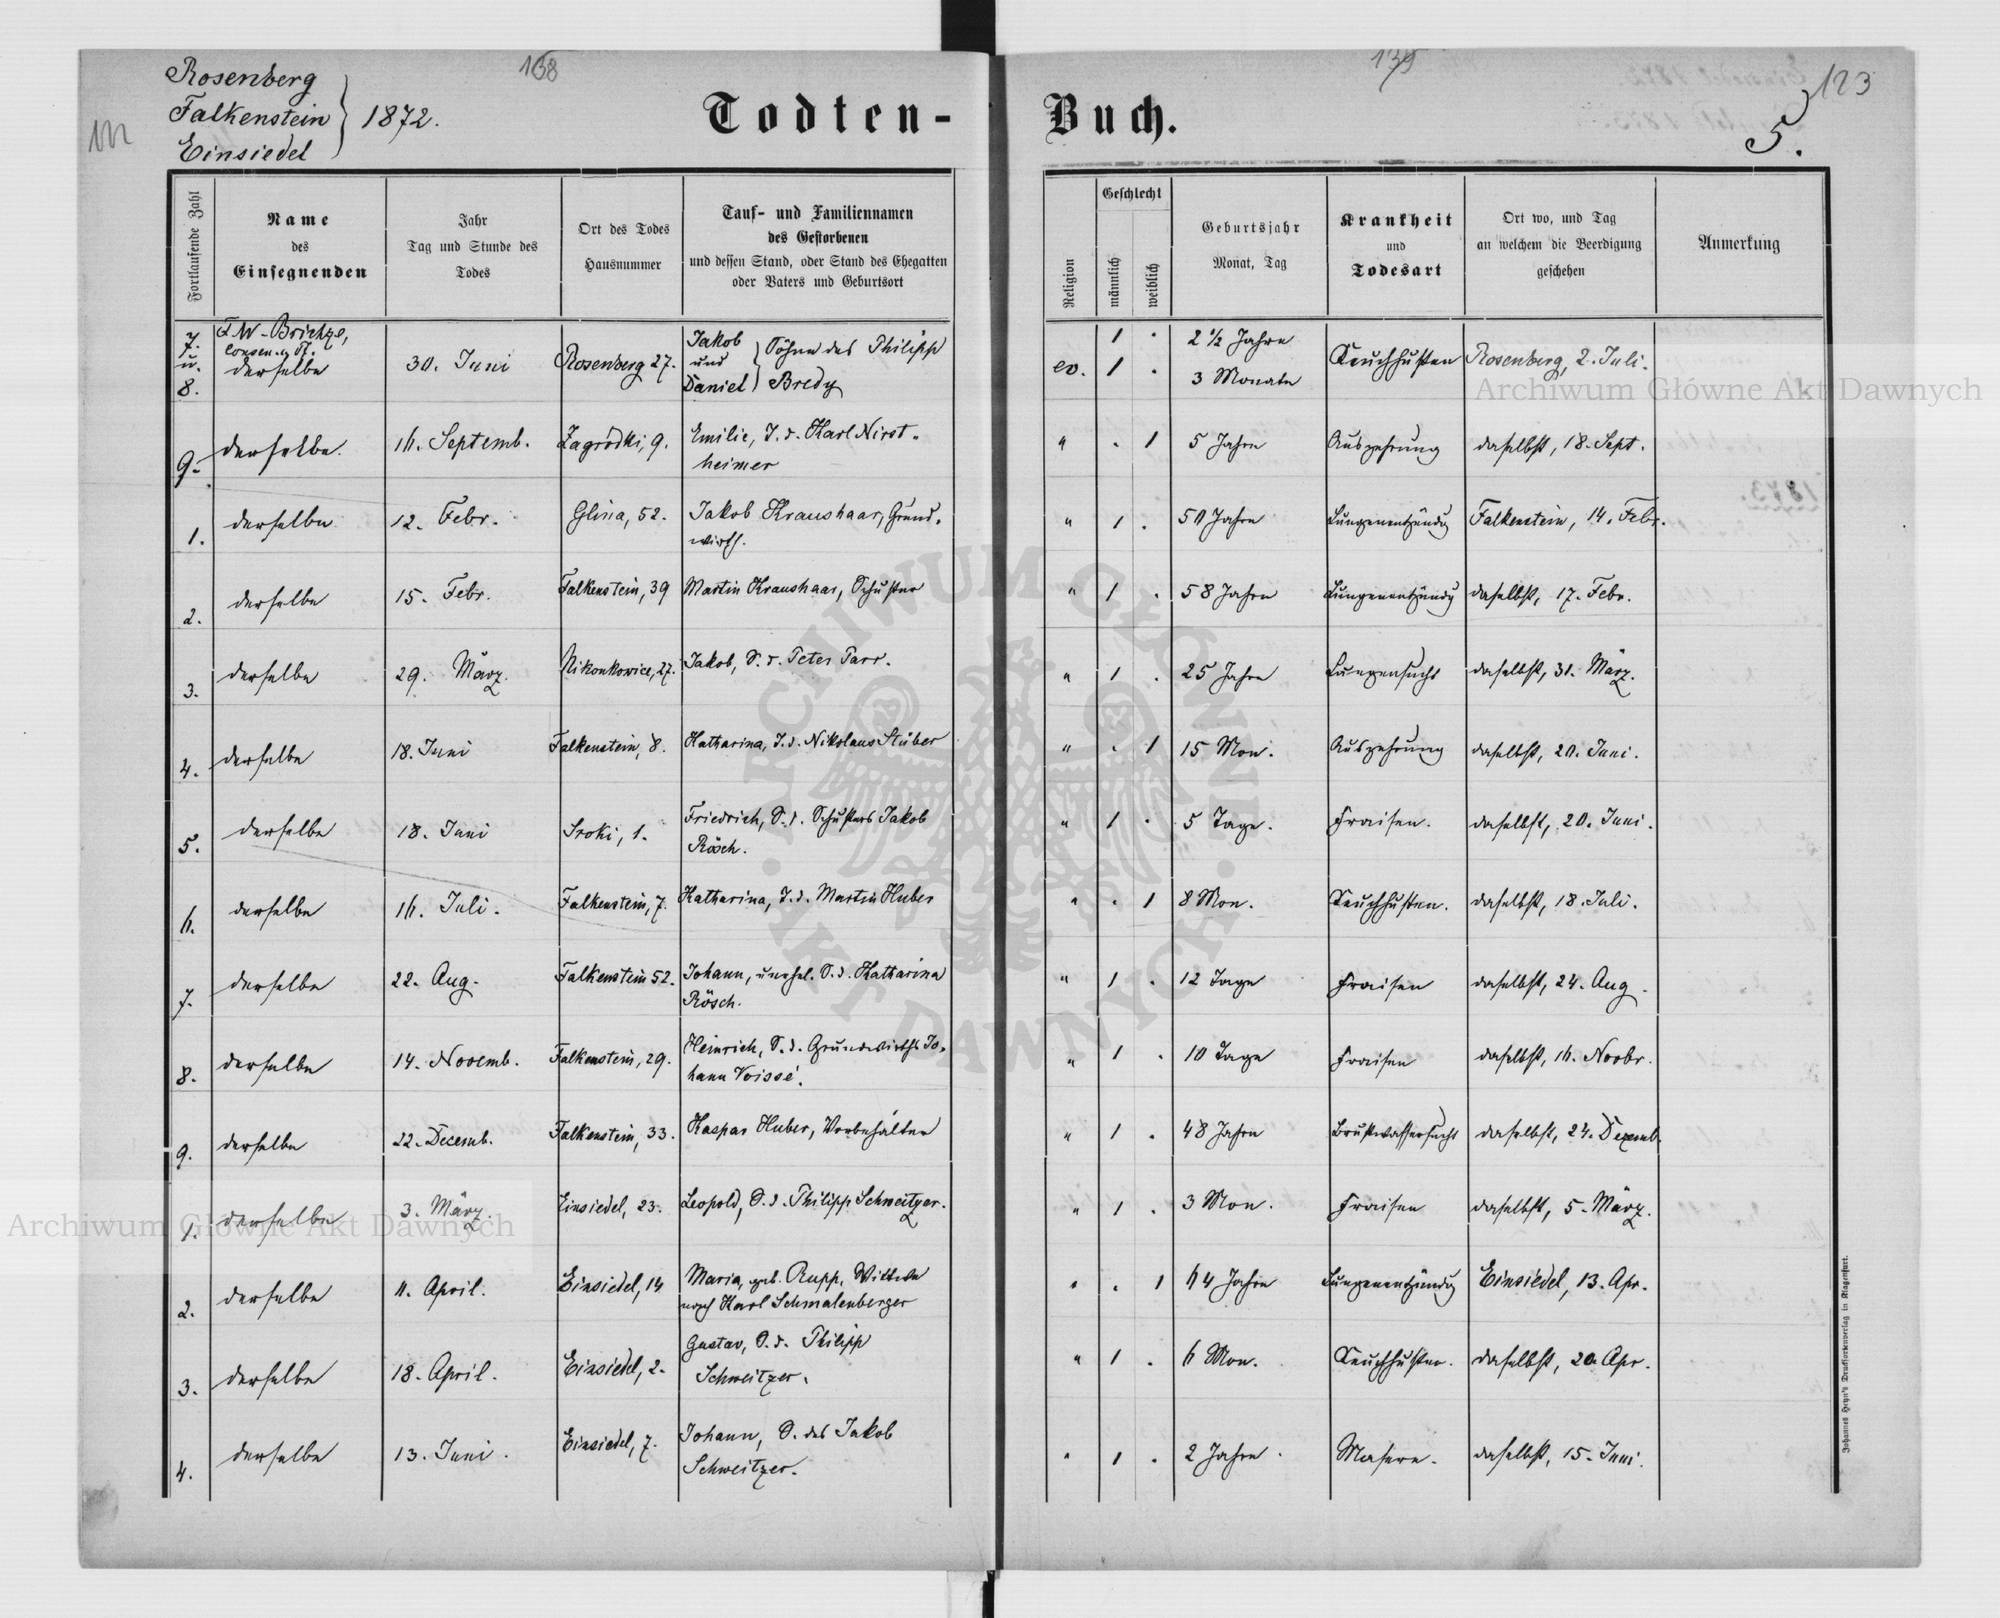 Rosenberg
Falkenstein } 1872.
Einsiedel
138
139
123
5.
Todten-Buch.
Fortlaufende Zahl
Name
des
Einsegnenden
Jahr
Tag und Stunde des
Todes
Ort des Todes
Hausnummer
Tauf- und Familiennamen
des Gestorbenen
und dessen Stand, oder Stand des Ehegatten
oder Vaters und Geburtsort
Religion
Geschlecht
männlich
weiblich
Geburtsjahr
Monat, Tag
Krankheit
und
Todesart
Ort wo, und Tag
an welchem die Beerdigung
geschehen
Anmerkung
7. u. 8. derselbe 30. Juni Rosenberg 27. Jakob und Daniel } Söhne des Philipp Bredy ev. 1 . 2 1/2 Jahre 1 . 3 Monate Keuchhusten Rosenberg, 2. Juli.
9. derselbe. 16. Septemb. Zagrodki, 9. Emilie, T. d. Karl Nirst-
heimer " . 1 5 Jahre Auszehrung daselbst, 18. Sept.
1. derselbe 12. Febr. Glina, 52. Jakob Kraushaar, Grund-
wirth. " 1 . 50 Jahre Lungenentzündg Falkenstein, 14. Febr.
2. derselbe 15. Febr. Falkenstein, 39 Martin Kraushaar, Schuster " 1 . 58 Jahre Lungenentzündg daselbst, 17. Febr.
3. derselbe 29. März. Nikonkowice, 27. Jakob, S. d. Peter Parr. " 1 . 25 Jahre Lungensucht daselbst, 31. März.
4. derselbe 18. Juni Falkenstein, 8. Katharina, T. d. Nikolaus Stüber " . 1 15 Mon. Auszehrung daselbst, 20. Juni.
5. derselbe 18. Juni Sroki, 1. Friedrich, S. d. Schusters Jakob
Rösch. " 1 . 5 Tage. Fraisen. daselbst, 20. Juni.
6. derselbe 16. Juli. Falkenstein, 7. Katharina, T. d. Martin Huber " . 1 8 Mon. Keuchhusten. daselbst, 18. Juli.
7. derselbe 22. Aug. Falkenstein 52. Johann, unehel. S. d. Katharina
Rösch. " 1 . 12 Tage Fraisen daselbst, 24. Aug.
8. derselbe 14. Novemb. Falkenstein, 29. Heinrich, S. d. Grundwirths Jo-
hann Voissé. " 1 . 10 Tage Fraisen daselbst, 16. Novbr.
9. derselbe 22. Decemb. Falkenstein, 33. Kaspar Huber, Vorbehälter " 1 . 48 Jahre Brustwassersucht daselbst, 24. Dezemb.
1. derselbe 3. März. Einsiedel, 23. Leopold, S. d. Philipp Schweitzer. " 1 . 3 Mon. Fraisen daselbst, 5. März.
2. derselbe 11. April. Einsiedel, 14 Maria, geb. Rupp, Wittwe
nach Karl Schmalenberger " . 1 64 Jahre Lungenentzündg Einsiedel, 13. Apr.
3. derselbe 18. April. Einsiedel, 2. Gustav, S. d. Philipp
Schweitzer. " 1 . 6 Mon. Keuchhusten. daselbst, 20. Apr.
4. derselbe 13. Juni. Einsiedel, 7. Johann, S. des Jakob
Schweitzer. " 1 . 2 Jahre. Masern. daselbst, 15. Juni.
Johannes Heyn's Drucksortenverlag in Klagenfurt.
Archiwum Główne Akt Dawnych
Archiwum Główne Akt Dawnych
ARCHIWUM GŁÓWNE · AKT DAWNYCH ·